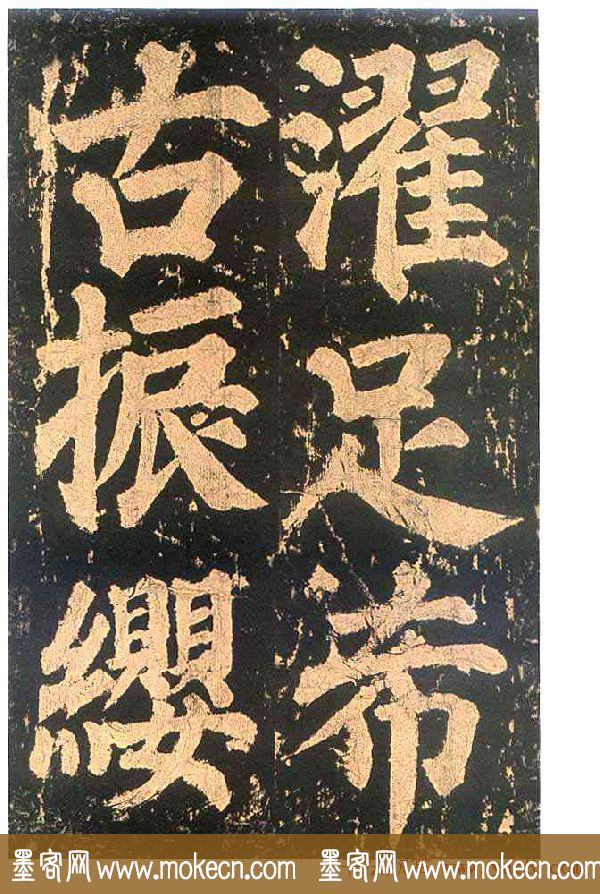 濯足希
古振纓
墨客网 www.mokecn.com 墨客网 www.mokecn.com